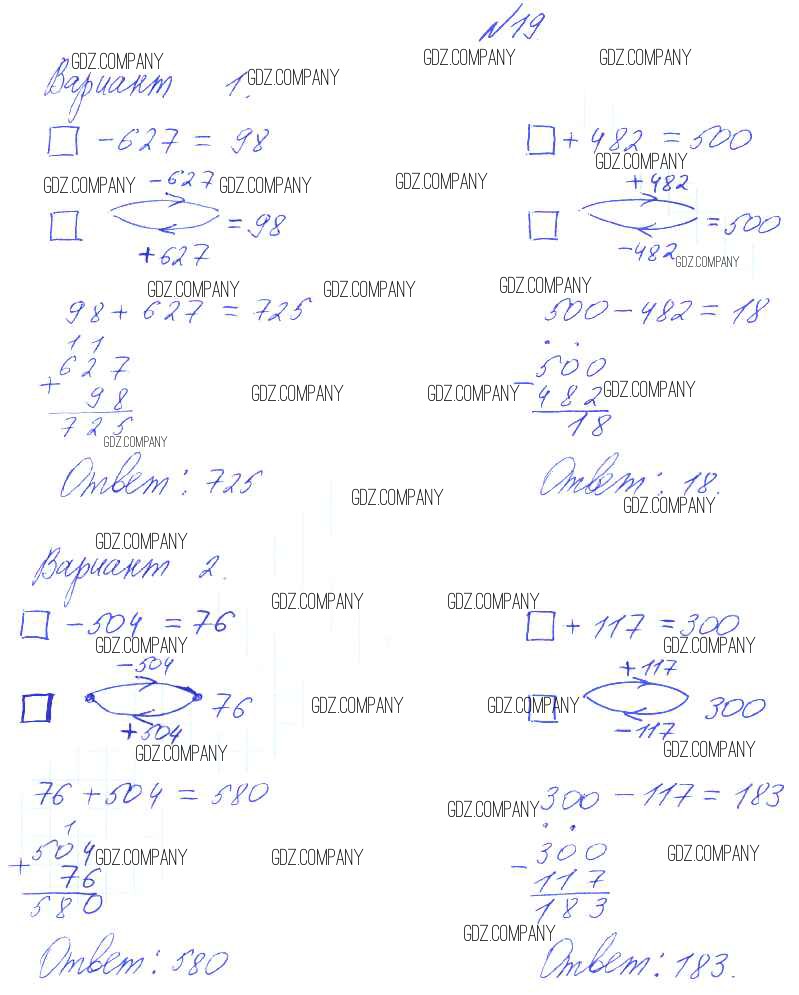 №19
GDZ.COMPANY GDZ.COMPANY GDZ.COMPANY GDZ.COMPANY
Вариант 1.
□ - 627 = 98
□ + 482 = 500
GDZ.COMPANY
GDZ.COMPANY GDZ.COMPANY GDZ.COMPANY
-627
+482
□ = 98
□ = 500
+627
-482
GDZ.COMPANY
GDZ.COMPANY GDZ.COMPANY GDZ.COMPANY
98 + 627 = 725
500 - 482 = 18
1 1
. .
627
500
+
-
98
482
GDZ.COMPANY GDZ.COMPANY GDZ.COMPANY
725
18
GDZ.COMPANY
Ответ: 725
Ответ: 18.
GDZ.COMPANY GDZ.COMPANY
GDZ.COMPANY
Вариант 2.
GDZ.COMPANY GDZ.COMPANY
□ - 504 = 76
□ + 117 = 300
GDZ.COMPANY GDZ.COMPANY
-504
+117
□ 76
□ 300
GDZ.COMPANY GDZ.COMPANY
+504
-117
GDZ.COMPANY GDZ.COMPANY
76 + 504 = 580
300 - 117 = 183
GDZ.COMPANY
1
. .
504
300
+
-
GDZ.COMPANY GDZ.COMPANY GDZ.COMPANY
76
117
580
183
GDZ.COMPANY
Ответ: 580
Ответ: 183.